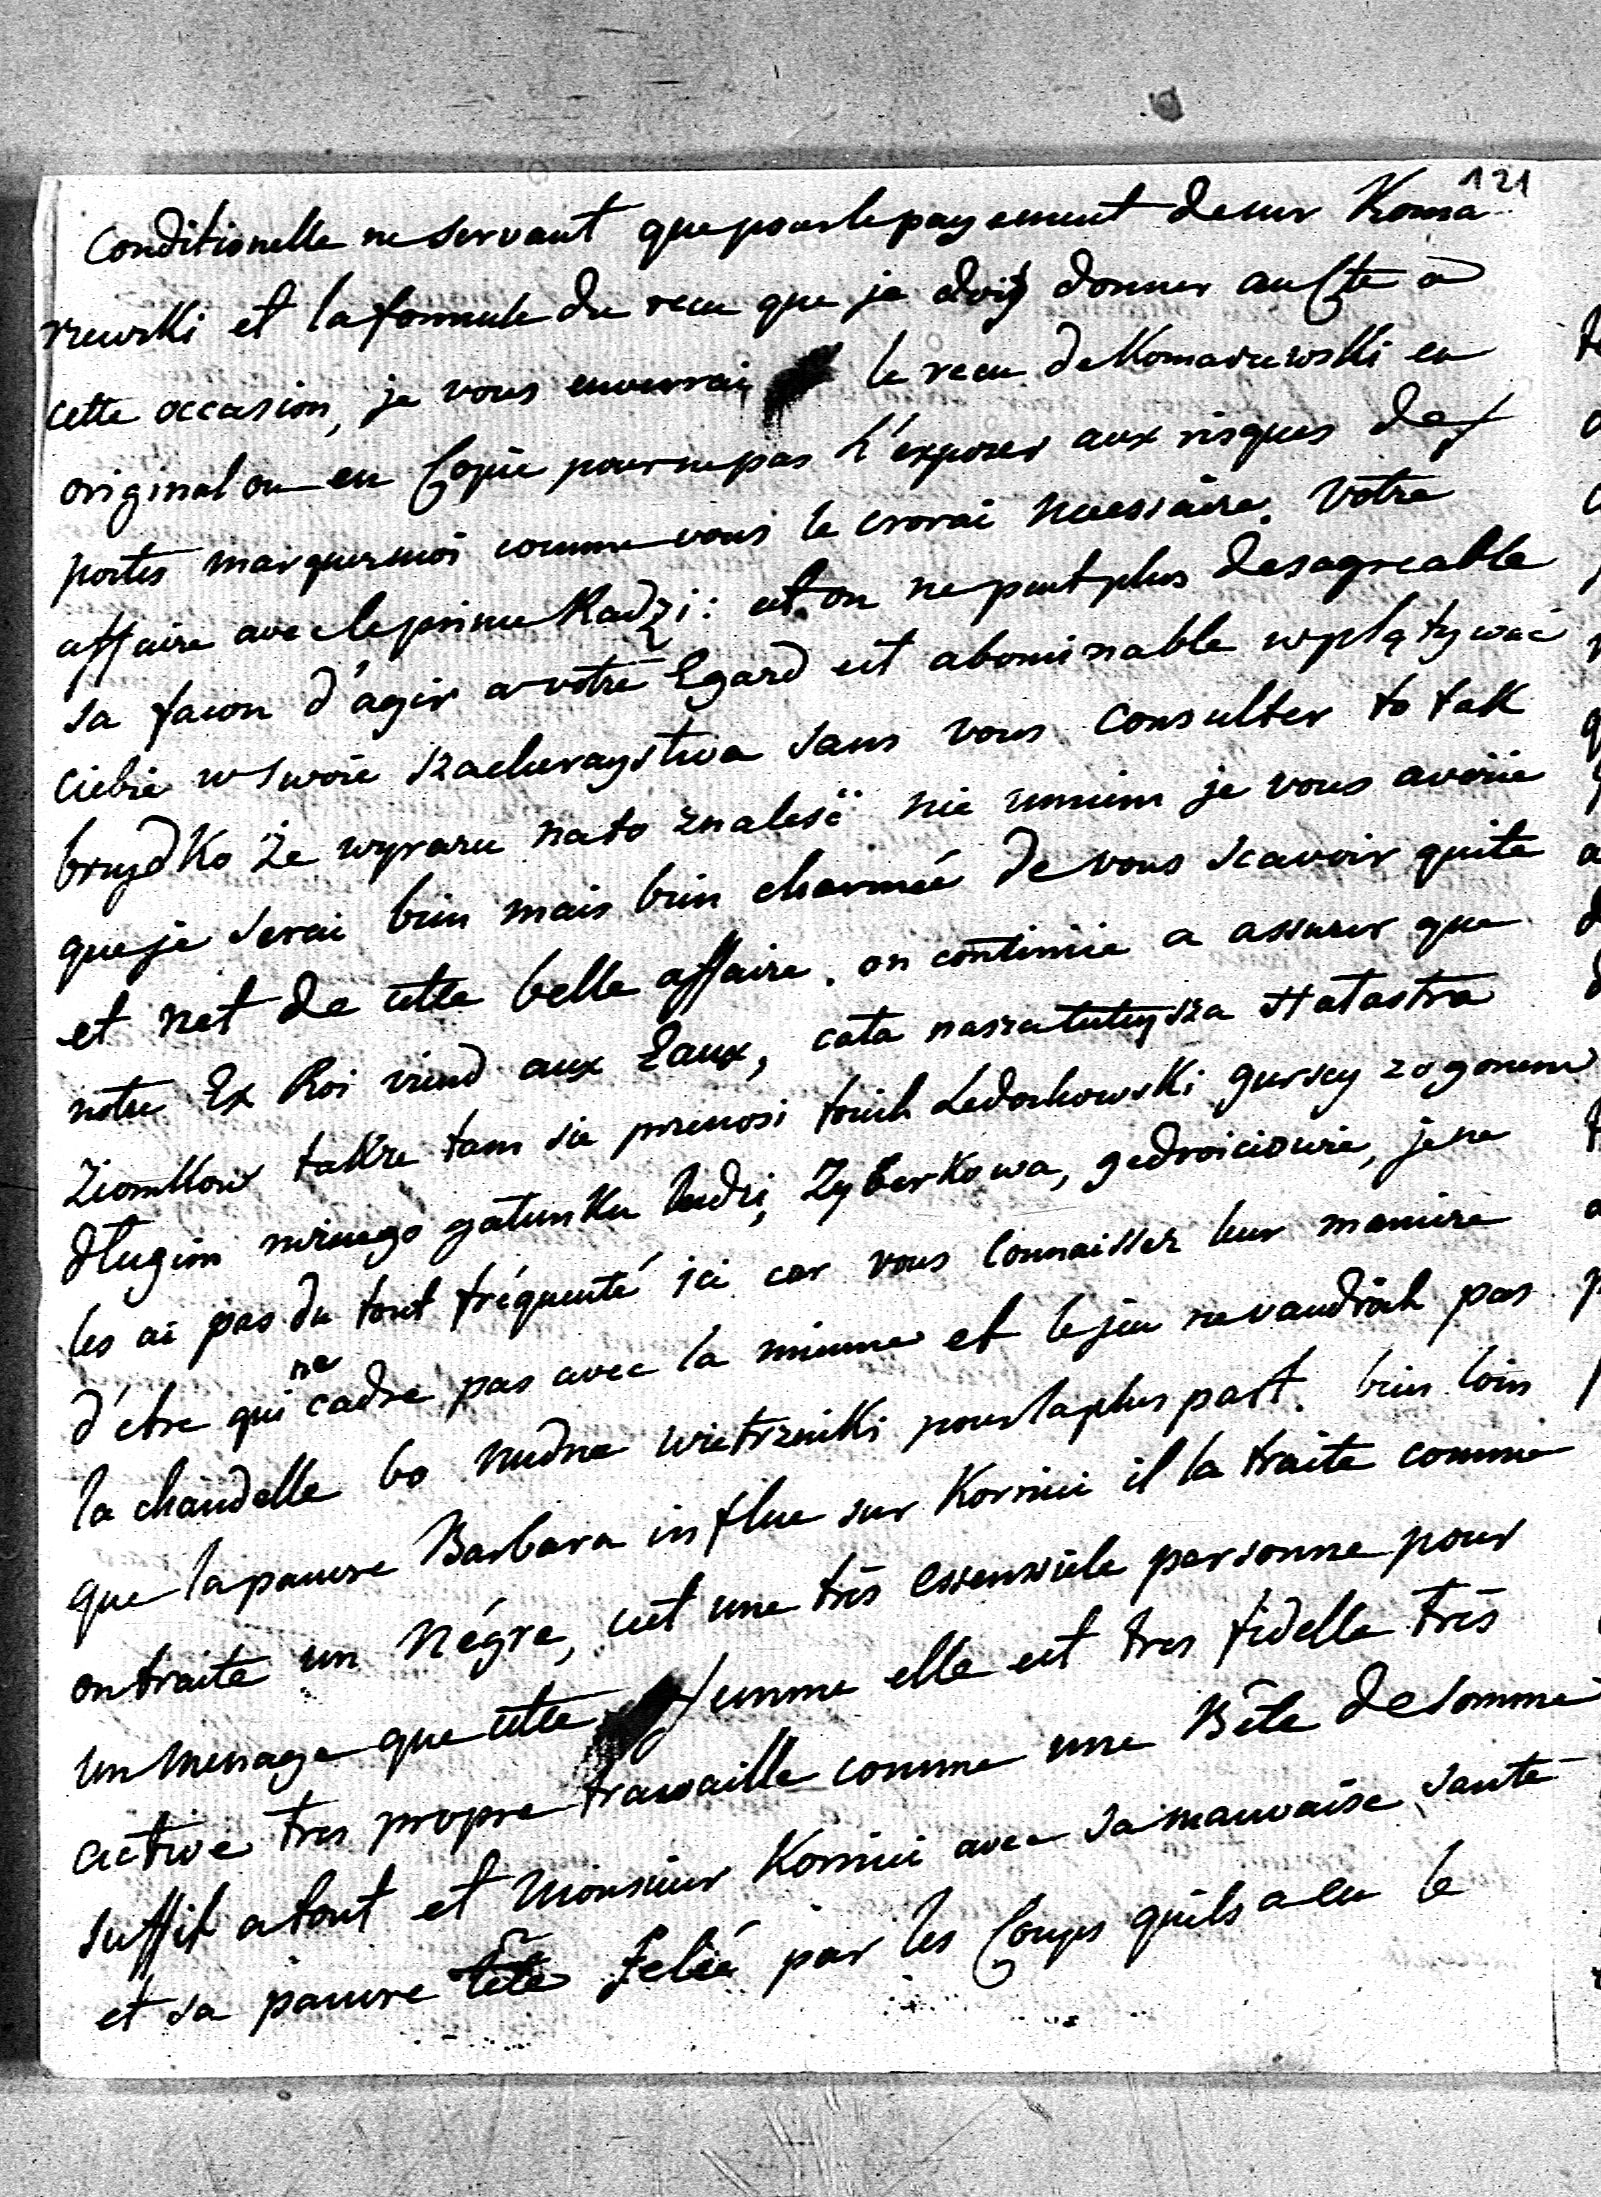 121
Conditionelle ne servant que pour le payement de mr Koma
rzewski et la formule du recu que je dois donner au Cte à
cette occasion, je vous enverrai le recu de Komarzewski en
original ou en Copie pour ne pas l'exposer aux risques des
postes marquez moi comme vous le crorai nécessaire. Votre
affaire avec le prince Radzi: est on ne peut plus desagreable
sa facon d'agir a votre Egard est abominable wplątywać
ciebie w swoie szacheraystwa sans vous consulter to tak
brzydko że wyrazu na to znaleść nie umiem je vous avoüe
que je serai bien mais bien charmée de vous scavoir quite
et net de cette belle affaire. on continüe a assurer que
notre Ex Roi viend aux Eaux, cała nasza tuteysza Hałastra
Ziomkow także tam sie przenosi to iest Ledochowski gurscy z ogonem
długim nizszego gatunku ludzi, Zyberkowa, gedroiciowie, je ne
les ai pas du tout fréquenté ici car vous connaissez leur maniere
d'etre qui ne cadre pas avec la mienne et le jeu ne vaudroit pas
la chandelle bo nudne wietrzniki pour la plus part. bien loin
que la pauvre Barbara influe sur Kornici il la traite comme
on traite un Négre, c'est une très essensiele personne pour
un menage que cette femme elle est tres fidelle très
active tres propre travaille comme une Bête de somme
suffit a tout et Monsieur Kornici avec sa mauvaise santé
et sa pauvre tête felée par les Coups quils a eu le